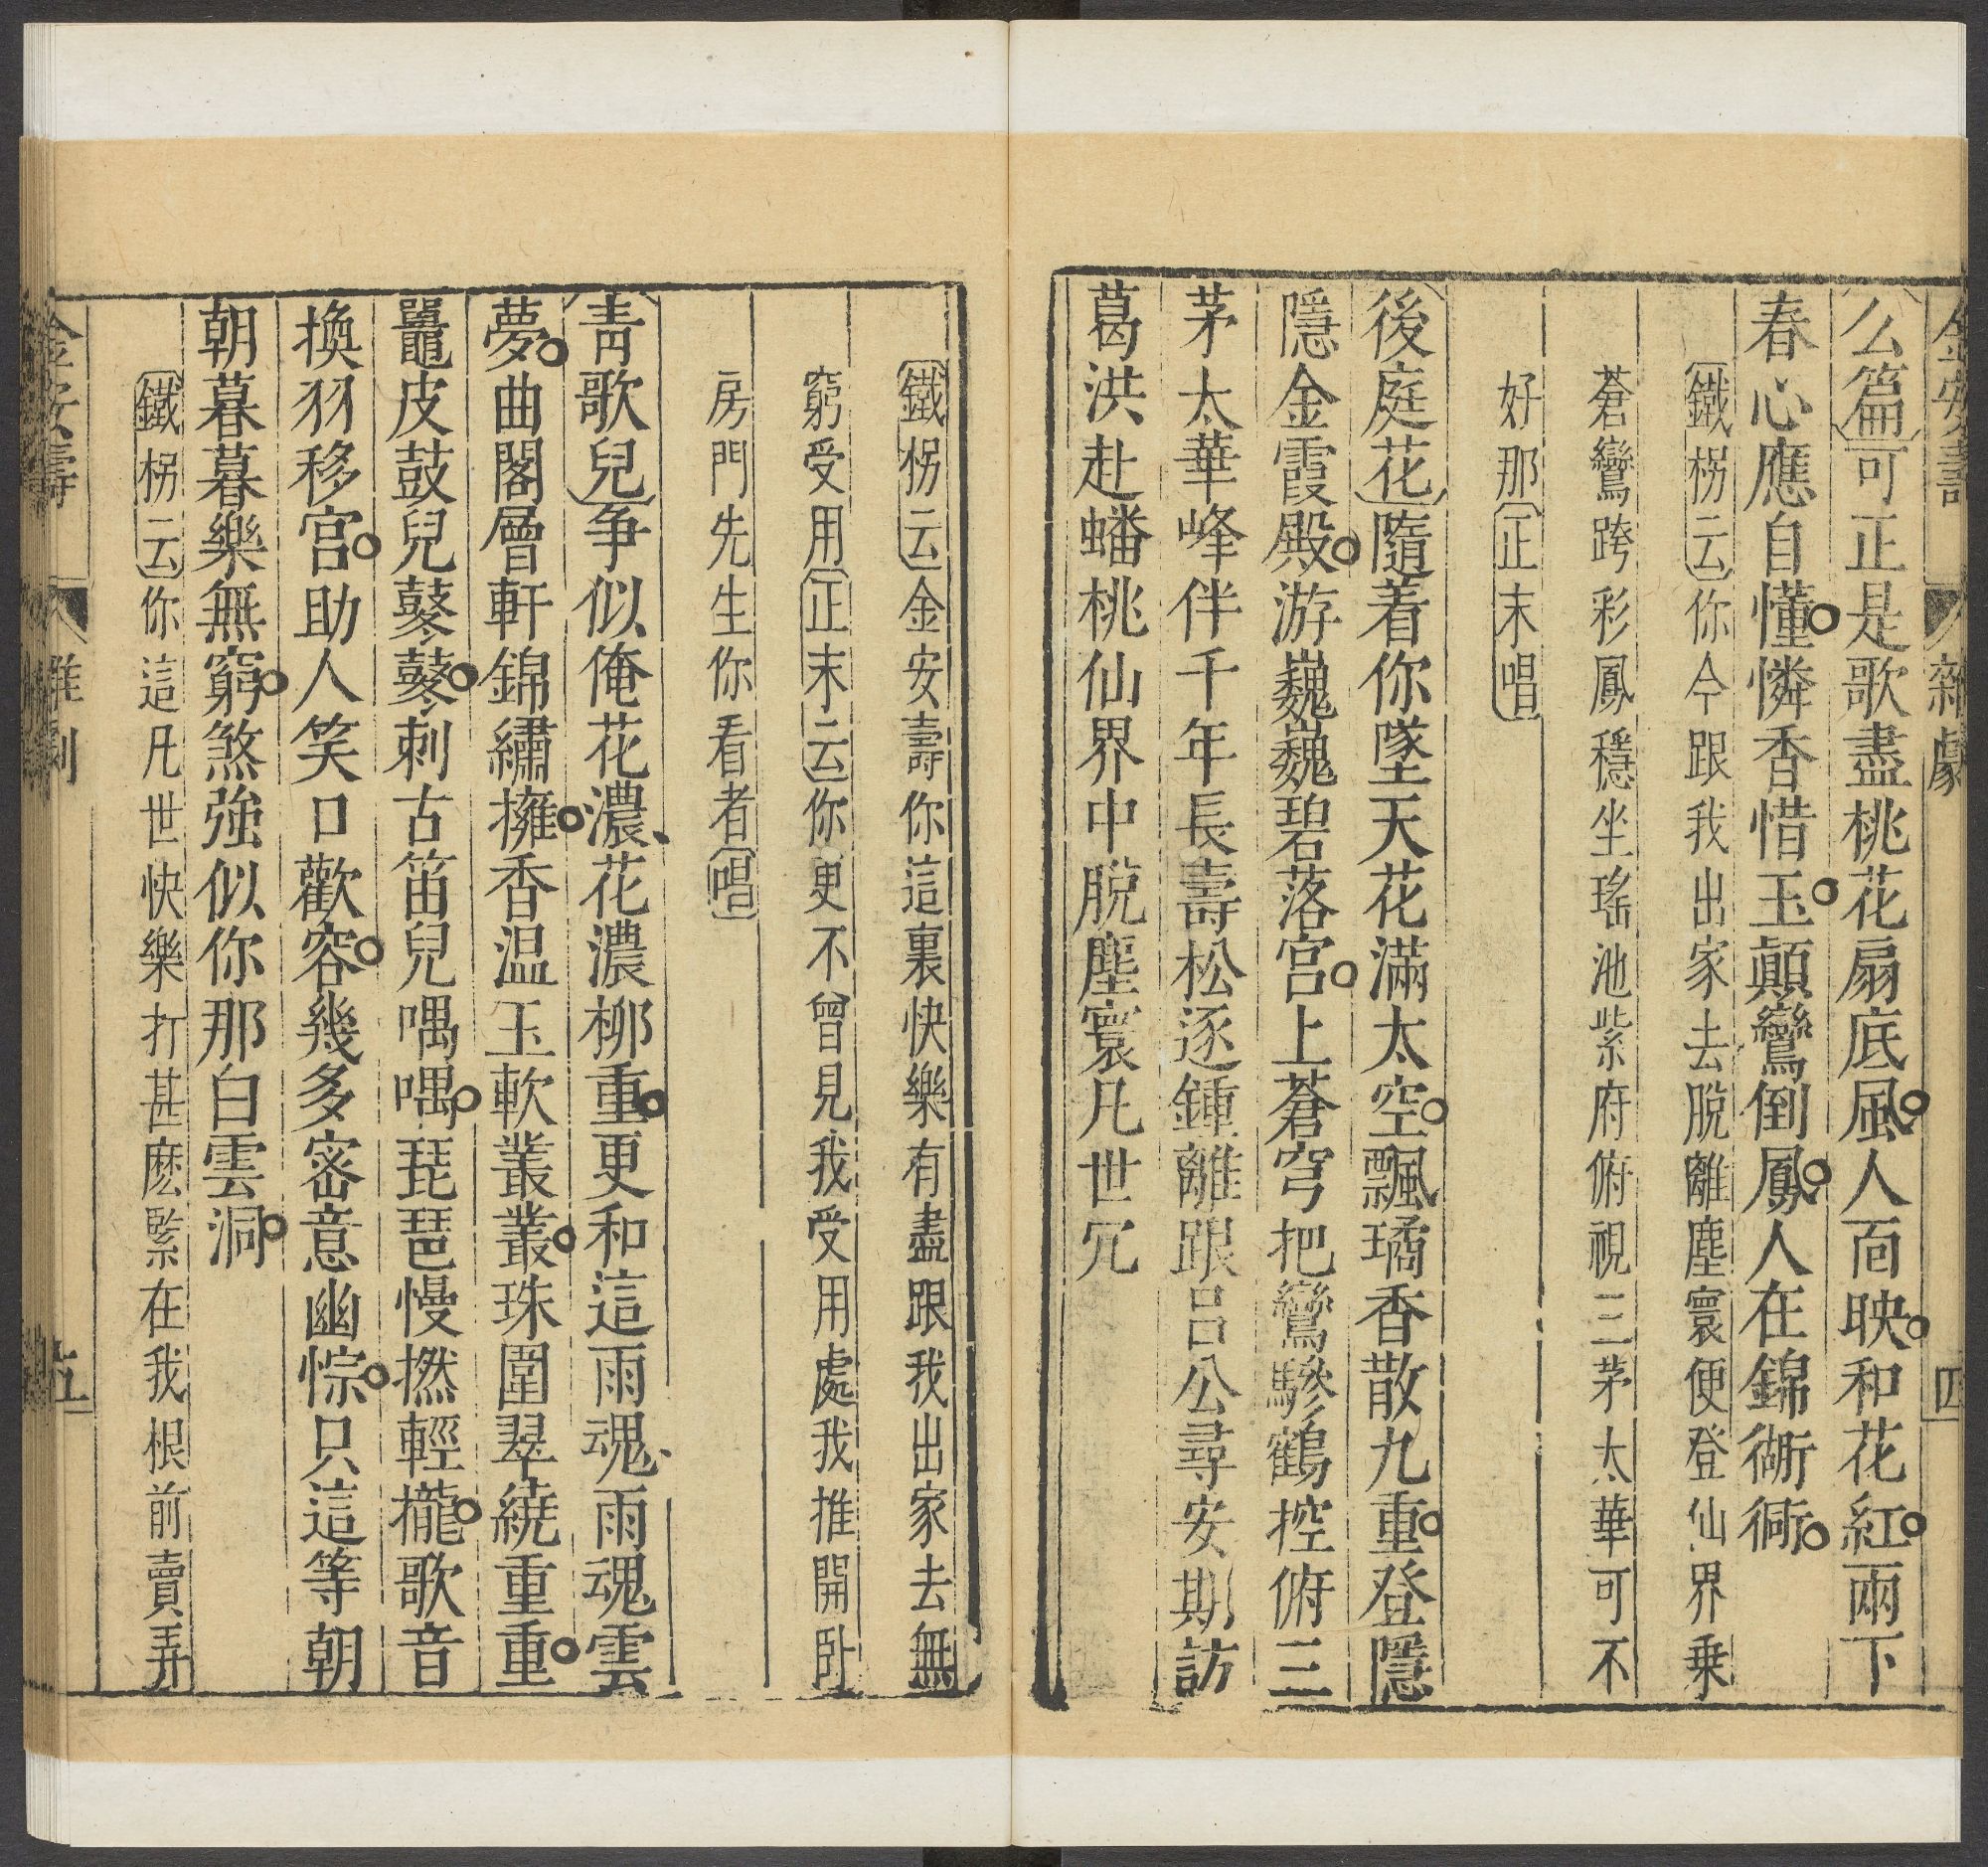 金安壽 雜劇 四
么篇可正是歌盡桃花扇底風人面映和花紅兩下
春心應自懂憐香惜玉顛鸞倒鳳人在錦衚衕
鐵拐云你今跟我出家去脫離塵寰便登仙界乗
蒼鸞跨彩鳳穩坐瑤池紫府俯視三茅太華可不
好那正末唱
後庭花隨着你墜天花滿太空飄璚香散九重登隱
隱金霞殿游巍巍碧落宮上蒼穹把鸞驂鶴控俯三
茅太華峰伴千年長壽松逐鍾離跟呂公尋安期訪
葛洪赴蟠桃仙界中脫塵寰凡世冗
鐵拐云金安壽你這裏快樂有盡跟我出家去無
窮受用正末云你更不曾見我受用處我推開卧
房門先生你看者唱
青歌兒爭似俺花濃花濃栁重更和這雨魂雨魂雲
夢曲閣層軒錦繡擁香温玉軟叢叢珠圍翠繞重重
鼉皮鼓兒鼕鼕刺古笛兒喁喁琵琶慢撚輕攏歌音
換羽移宮助人笑口歡容幾多密意幽悰只這等朝
朝暮暮樂無窮煞強似你那白雲洞
鐵拐云你這凡世快樂打甚麽緊在我根前賣弄
金安壽 雜劇 五